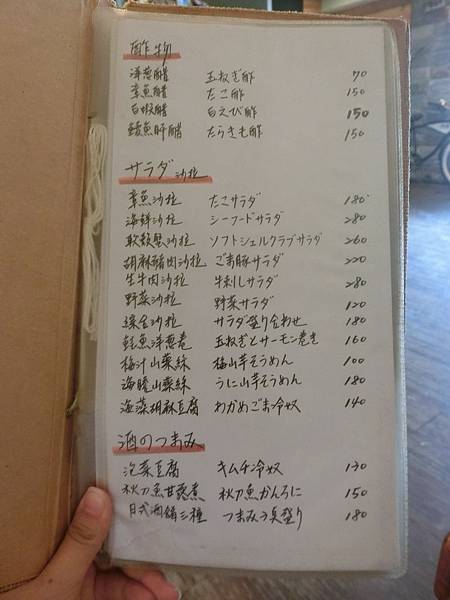 酢物
洋蔥醋 玉ねぎ酢 70
章魚醋 たこ酢 150
白蝦醋 白えび酢 150
鱈魚肝醋 たらきも酢 150
サラダ 沙拉
章魚沙拉 たこサラダ 180
海鮮沙拉 シーフードサラダ 280
軟殼蟹沙拉 ソフトシェルクラブサラダ 260
胡麻豬肉沙拉 ごま豚サラダ 220
生牛肉沙拉 牛刺しサラダ 280
野菜沙拉 野菜サラダ 120
綜合沙拉 サラダ盛り合わせ 180
鮭魚洋蔥卷 玉ねぎとサーモン巻き 160
梅汁山藥絲 梅山芋そうめん 100
海膽山藥絲 うに山芋そうめん 180
海藻胡麻豆腐 わかめごま冷奴 140
酒のつまみ
泡菜豆腐 キムチ冷奴 130
秋刀魚甘露煮 秋刀魚かんろに 150
日式酒餚三種 つまみ3点盛り 180